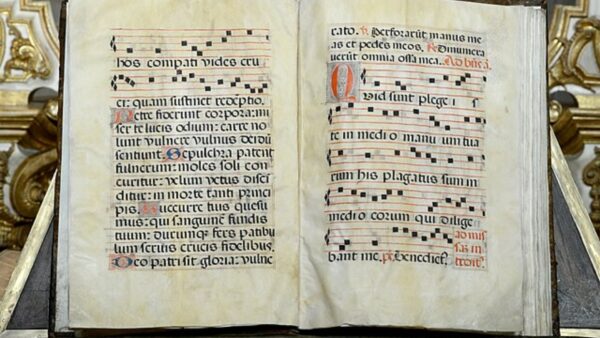 hos compati vides cru
ci: quam sustinet redeptio.
Petre corpora: in
ser te lucis odium:
lunt vulnere vulnus
sentiunt. Sepulchra patent
funerum: moles soli con
cutitur: velum vetus disci
ditur: in morte tanti princi
pis. Succurre tuis quesu
mus: qui sanguine fundis
tuum: durumque fers patibu
lum servis crucis fidelibus.
Deo patri sit gloria: vulne
rato. Perforarūt manus me
as et pedes meos. Dinumera
verūt omnia ossa mea.
Quid sunt plege i s
te in medi o manu um tua
rum his plagatus sum in
medi o eorum qui dilige
ad mis
sā: in
bant me. ps. Benedict. troit.